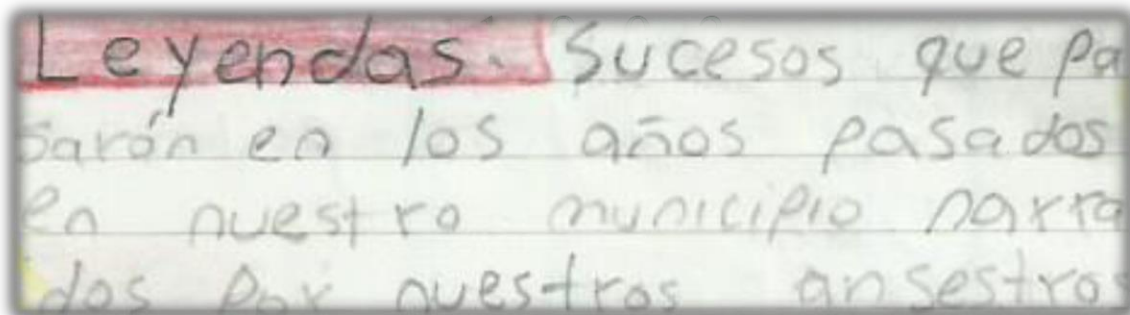 Leyendas. Sucesos que pa
sarón en los años pasados
en nuestro municipio narra
dos por nuestros ansestros